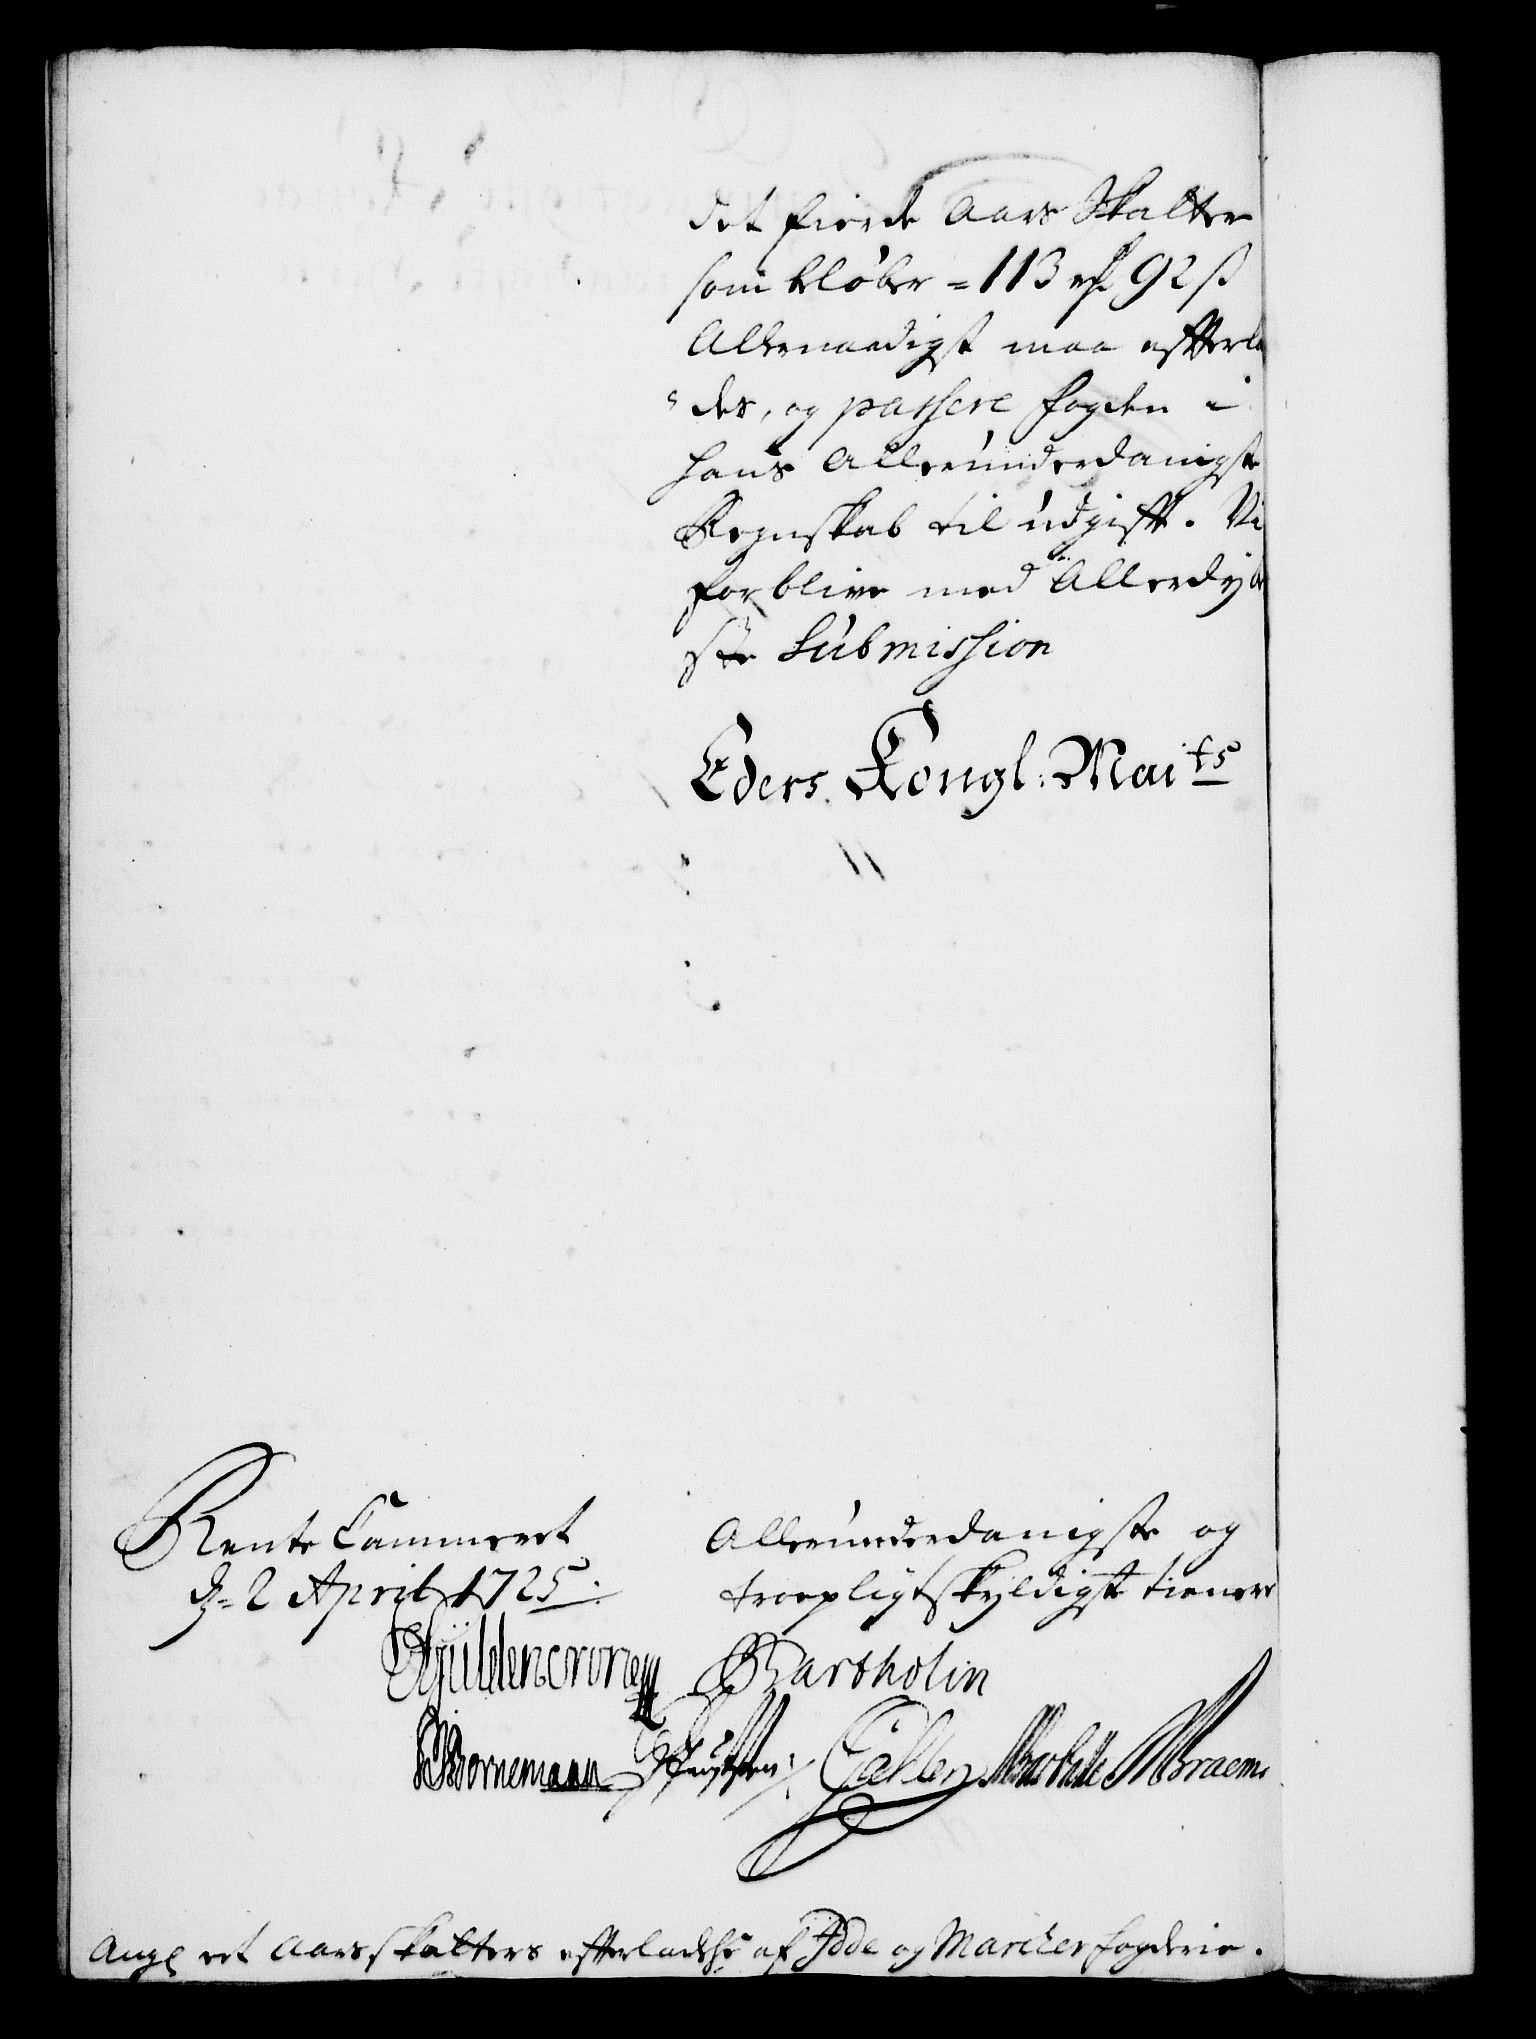 det fierde Aars Skatter
som beløber = 113 rd 92 ß
Allernaadigst maa efterla
des, og passere fogden i
hans Allerunderdanigste
Regnskab til udgift. Vi
forblive med Allerdybe
ste Submission
Eders Kongl: Maits
Rente Cammeret
d= 2 April 1725.
Allerunderdanigste og
troepligtskyldigste tienere
Güldencrone
Bartholin
Bornemann
Braem
Ang: et Aars skatters efterladelse af Idde og Marcker fogderie.